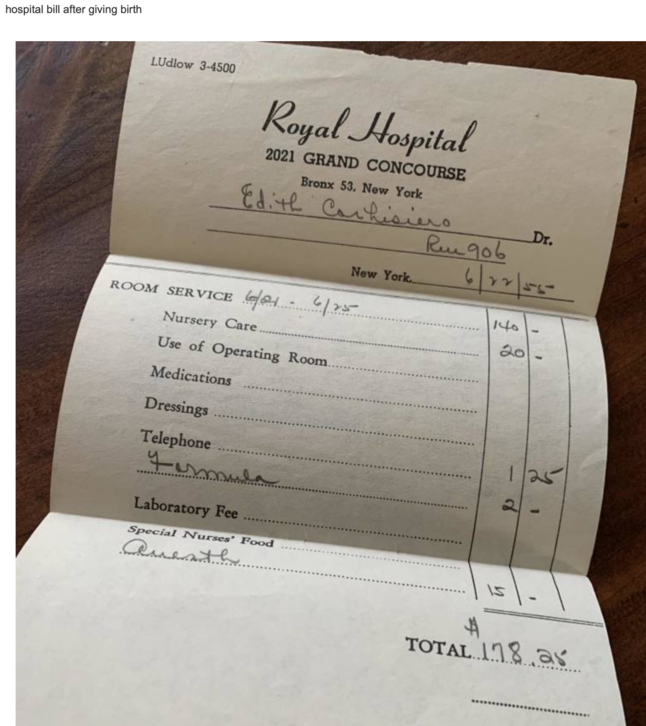 hospital bill after giving birth
LUdlow 3-4500
Royal Hospital
2021 GRAND CONCOURSE
Bronx 53, New York
Edith
Dr.
Rm 906
New York 6/22/55
ROOM SERVICE 6/21 - 6/25 140 -
Nursery Care 20 -
Use of Operating Room
Medications
Dressings
Telephone 1 25
Formula 2 -
Laboratory Fee
Special Nurses' Food
Anesth 15 -
$
TOTAL 178.25